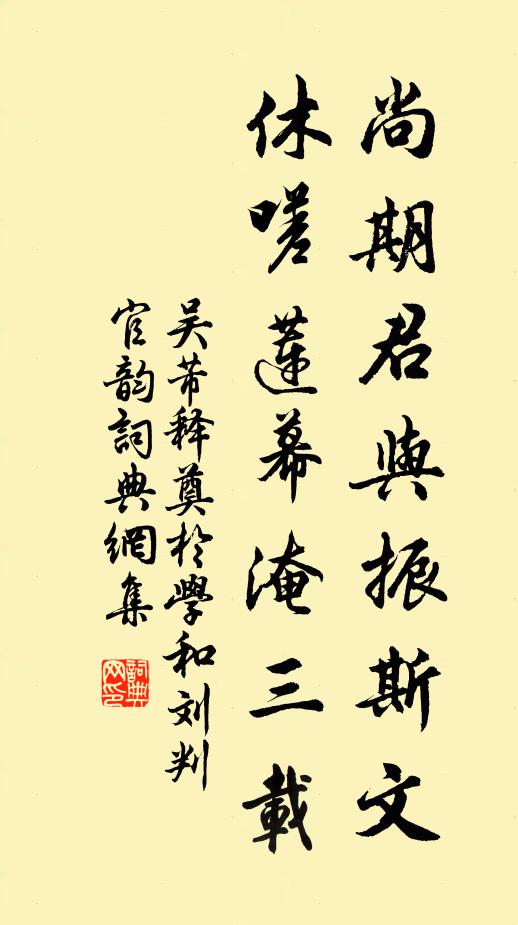 尚期君與振斯文
休嗟蓮幕淹三載
吴芾释奠於學和刘判
官韵詞典網集
詞典
网印